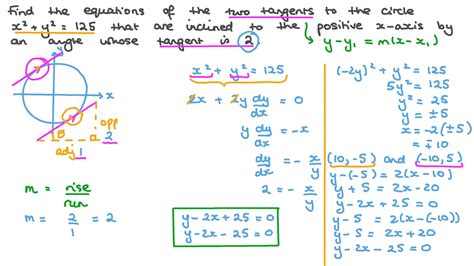 Find the equations of the two tangents to the circle
x² + y² = 125 that are inclined to the positive x-axis by
an angle whose tangent is 2.
y - y₁ = m(x - x₁)
y
x
θ
opp
2
adj 1
m = rise/run
m = 2/1 = 2
x² + y² = 125
2x + 2y dy/dx = 0
y dy/dx = -x
dy/dx = -x/y
2 = -x/y
y - 2x + 25 = 0
y - 2x - 25 = 0
(-2y)² + y² = 125
5y² = 125
y² = 25
y = ±5
x = -2(±5)
= ∓10
(10, -5) and (-10, 5)
y - (-5) = 2(x - 10)
y + 5 = 2x - 20
y - 2x + 25 = 0
y - 5 = 2(x - (-10))
y - 5 = 2x + 20
y - 2x - 25 = 0